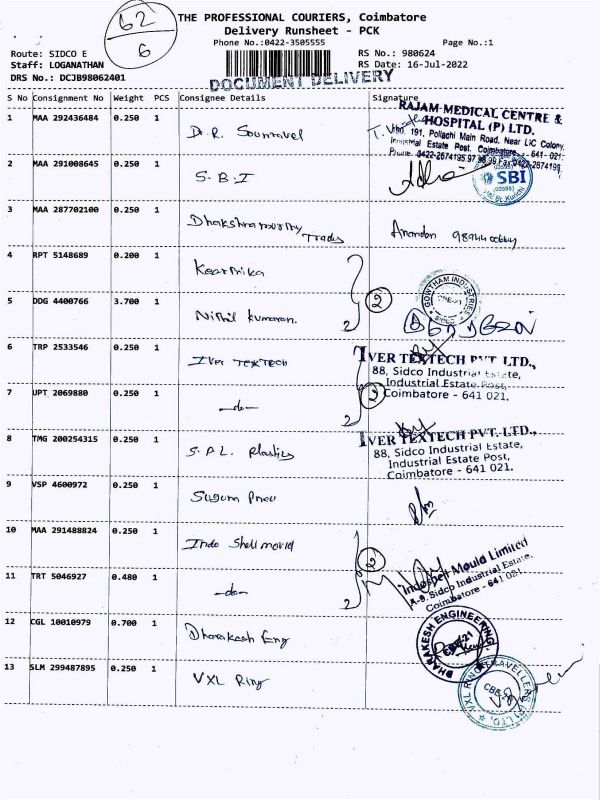 62
6
THE PROFESSIONAL COURIERS, Coimbatore
Delivery Runsheet - PCK
Phone No.:0422-3505555
Page No.:1
Route: SIDCO E
Staff: LOGANATHAN
DRS No.: DCJB98062401
RS No.: 980624
RS Date: 16-Jul-2022
DOCUMENT DELIVERY
S No Consignment No Weight PCS Consignee Details Signature
1 MAA 292436484 0.250 1 D.R. Sounravel
RAJAM MEDICAL CENTRE &
HOSPITAL (P) LTD.
191, Pollachi Main Road, Near LIC Colony,
Industrial Estate Post, Coimbatore - 641 021.
Phone: 0422-2674195
2 MAA 291008645 0.250 1 S.B.I
SBI
3 MAA 287702100 0.250 1 Dhakshnamurthy Trades Anandan
4 RPT 5148689 0.200 1 Keerthika
GOWTHAM INDUSTRIES
2
5 DDG 4400766 3.700 1 Nithil kumaran.
2
6 TRP 2533546 0.250 1 IVer TEXTECH
IVER TEXTECH PVT LTD.,
88, Sidco Industrial Estate,
Industrial Estate Post,
Coimbatore - 641 021.
7 UPT 2069880 0.250 1 -do-
2
8 TMG 200254315 0.250 1 S.P.L. Plastics
IVER TEXTECH PVT. LTD.,
88, Sidco Industrial Estate,
Industrial Estate Post,
Coimbatore - 641 021.
9 VSP 4600972 0.250 1 Suguna Pneu
10 MAA 291488824 0.250 1 Indo Shell mould
2
Indoshell Mould Limited
A-9, Sidco Industrial Estate,
Coimbatore - 641 021.
11 TRT 5046927 0.480 1 -do-
2
12 CGL 10010979 0.700 1 Dharakesh Eng
DHARAKESH ENGINEERING
CBE-21
13 SLM 299487895 0.250 1 VXL Ring
VXL RING TRAVELLERS (P) LTD.
CBE-21